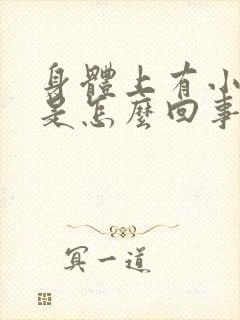 身體上有小
是怎麼回事
冥一道